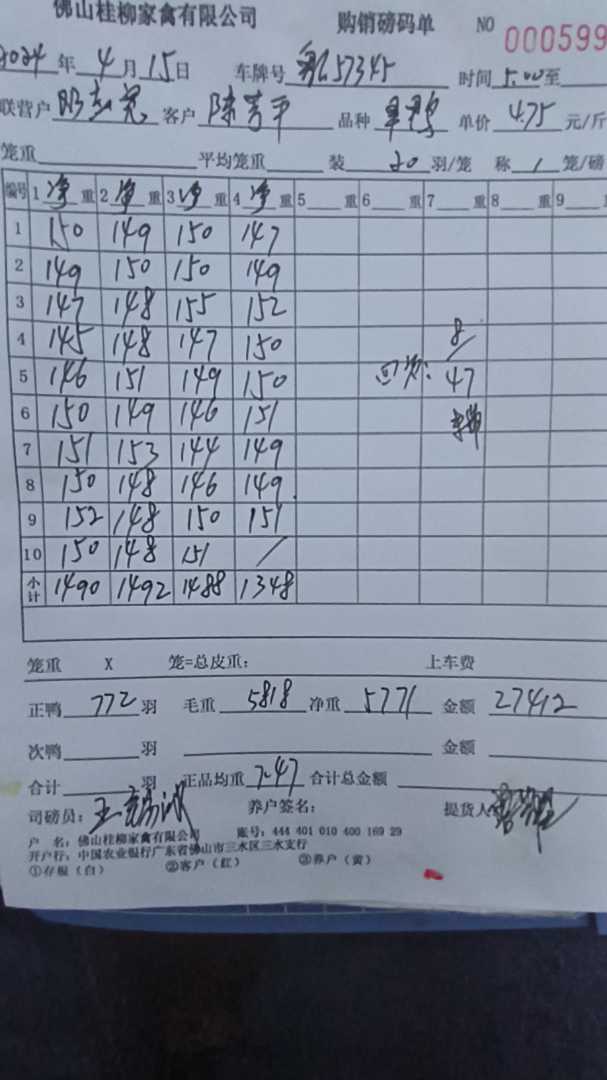 佛山桂柳家禽有限公司 购销磅码单 NO 000599
2024年4月15日 车牌号 57345 时间5.00至
联营户 客户 陈 平 品种 单价 4.75 元/斤
笼重 平均笼重 装 20 羽/笼 称 1 笼/磅
编号 1 净 重 2 净 重 3 净 重 4 净 重 5 重 6 重 7 重 8 重 9
1 150 149 150 147
2 149 150 150 149
3 147 148 155 152
4 145 148 147 150 8/
5 146 151 149 150 回 : 47
6 150 149 146 151
7 151 153 144 149
8 150 148 146 149
9 152 148 150 151
10 150 148 151 /
小计 1490 1492 1488 1348
笼重 X 笼=总皮重: 上车费
正鸭 772 羽 毛重 5818 净重 5771 金额 27412
次鸭 羽 金额
合计 羽 正品均重 7.47 合计总金额
司磅员: 王 养户签名: 提货人
户 名: 佛山桂柳家禽有限公司 账号: 444 401 010 400 169 29
开户行: 中国农业银行广东省佛山市三水区三水支行
①存根(白) ②客户(红) ③养户(黄)